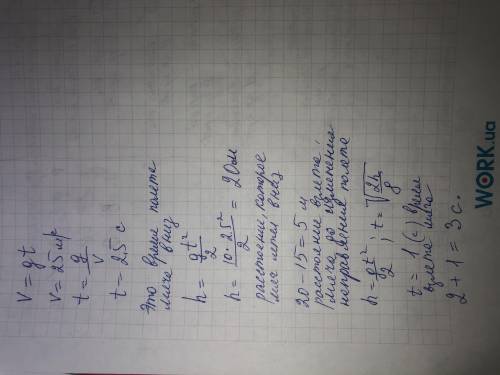 V = gt
V = 25 м/с
t = g/V
t = 25 с
Это время полета
мяча вниз
h = gt²/2
h = 10·25²/2 = 20 м
расстояние, которое
мяч летел вниз
20 - 15 = 5 м
расстояние взлета
мяча до изменения
направления полета
h = gt²/2 ; t = √2h/g
t = 1 (с) время
взлета мяча
2 + 1 = 3 с.
WORK.ua